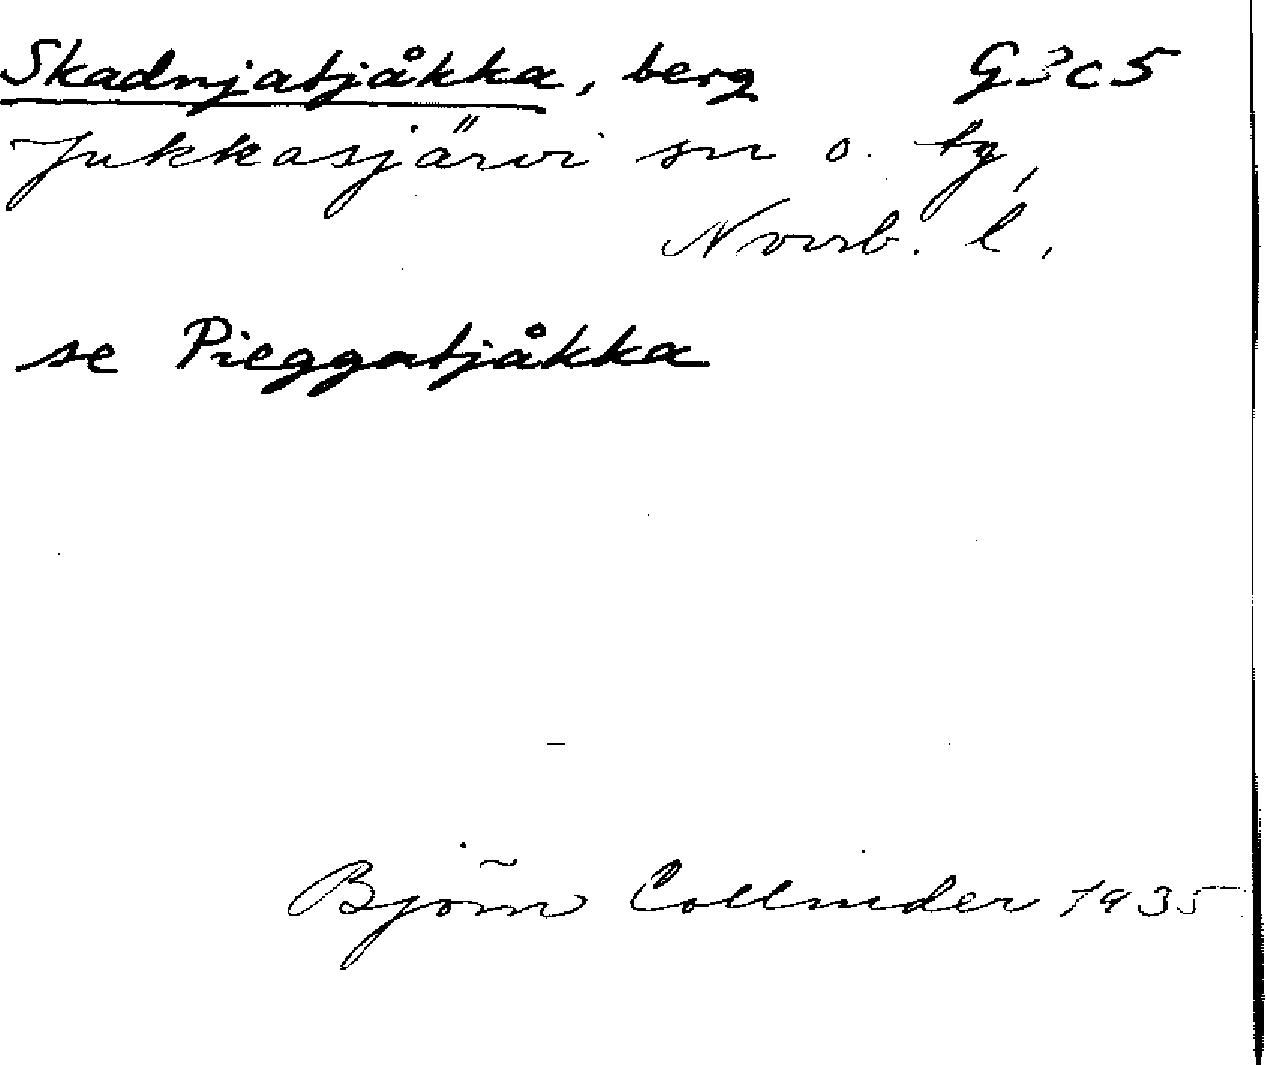 Skadnjatjåkka, berg G3c5
Jukkasjärvi sn o. tg,
Norrb. l.
se Pieggatjåkka
Björn Collinder 1935